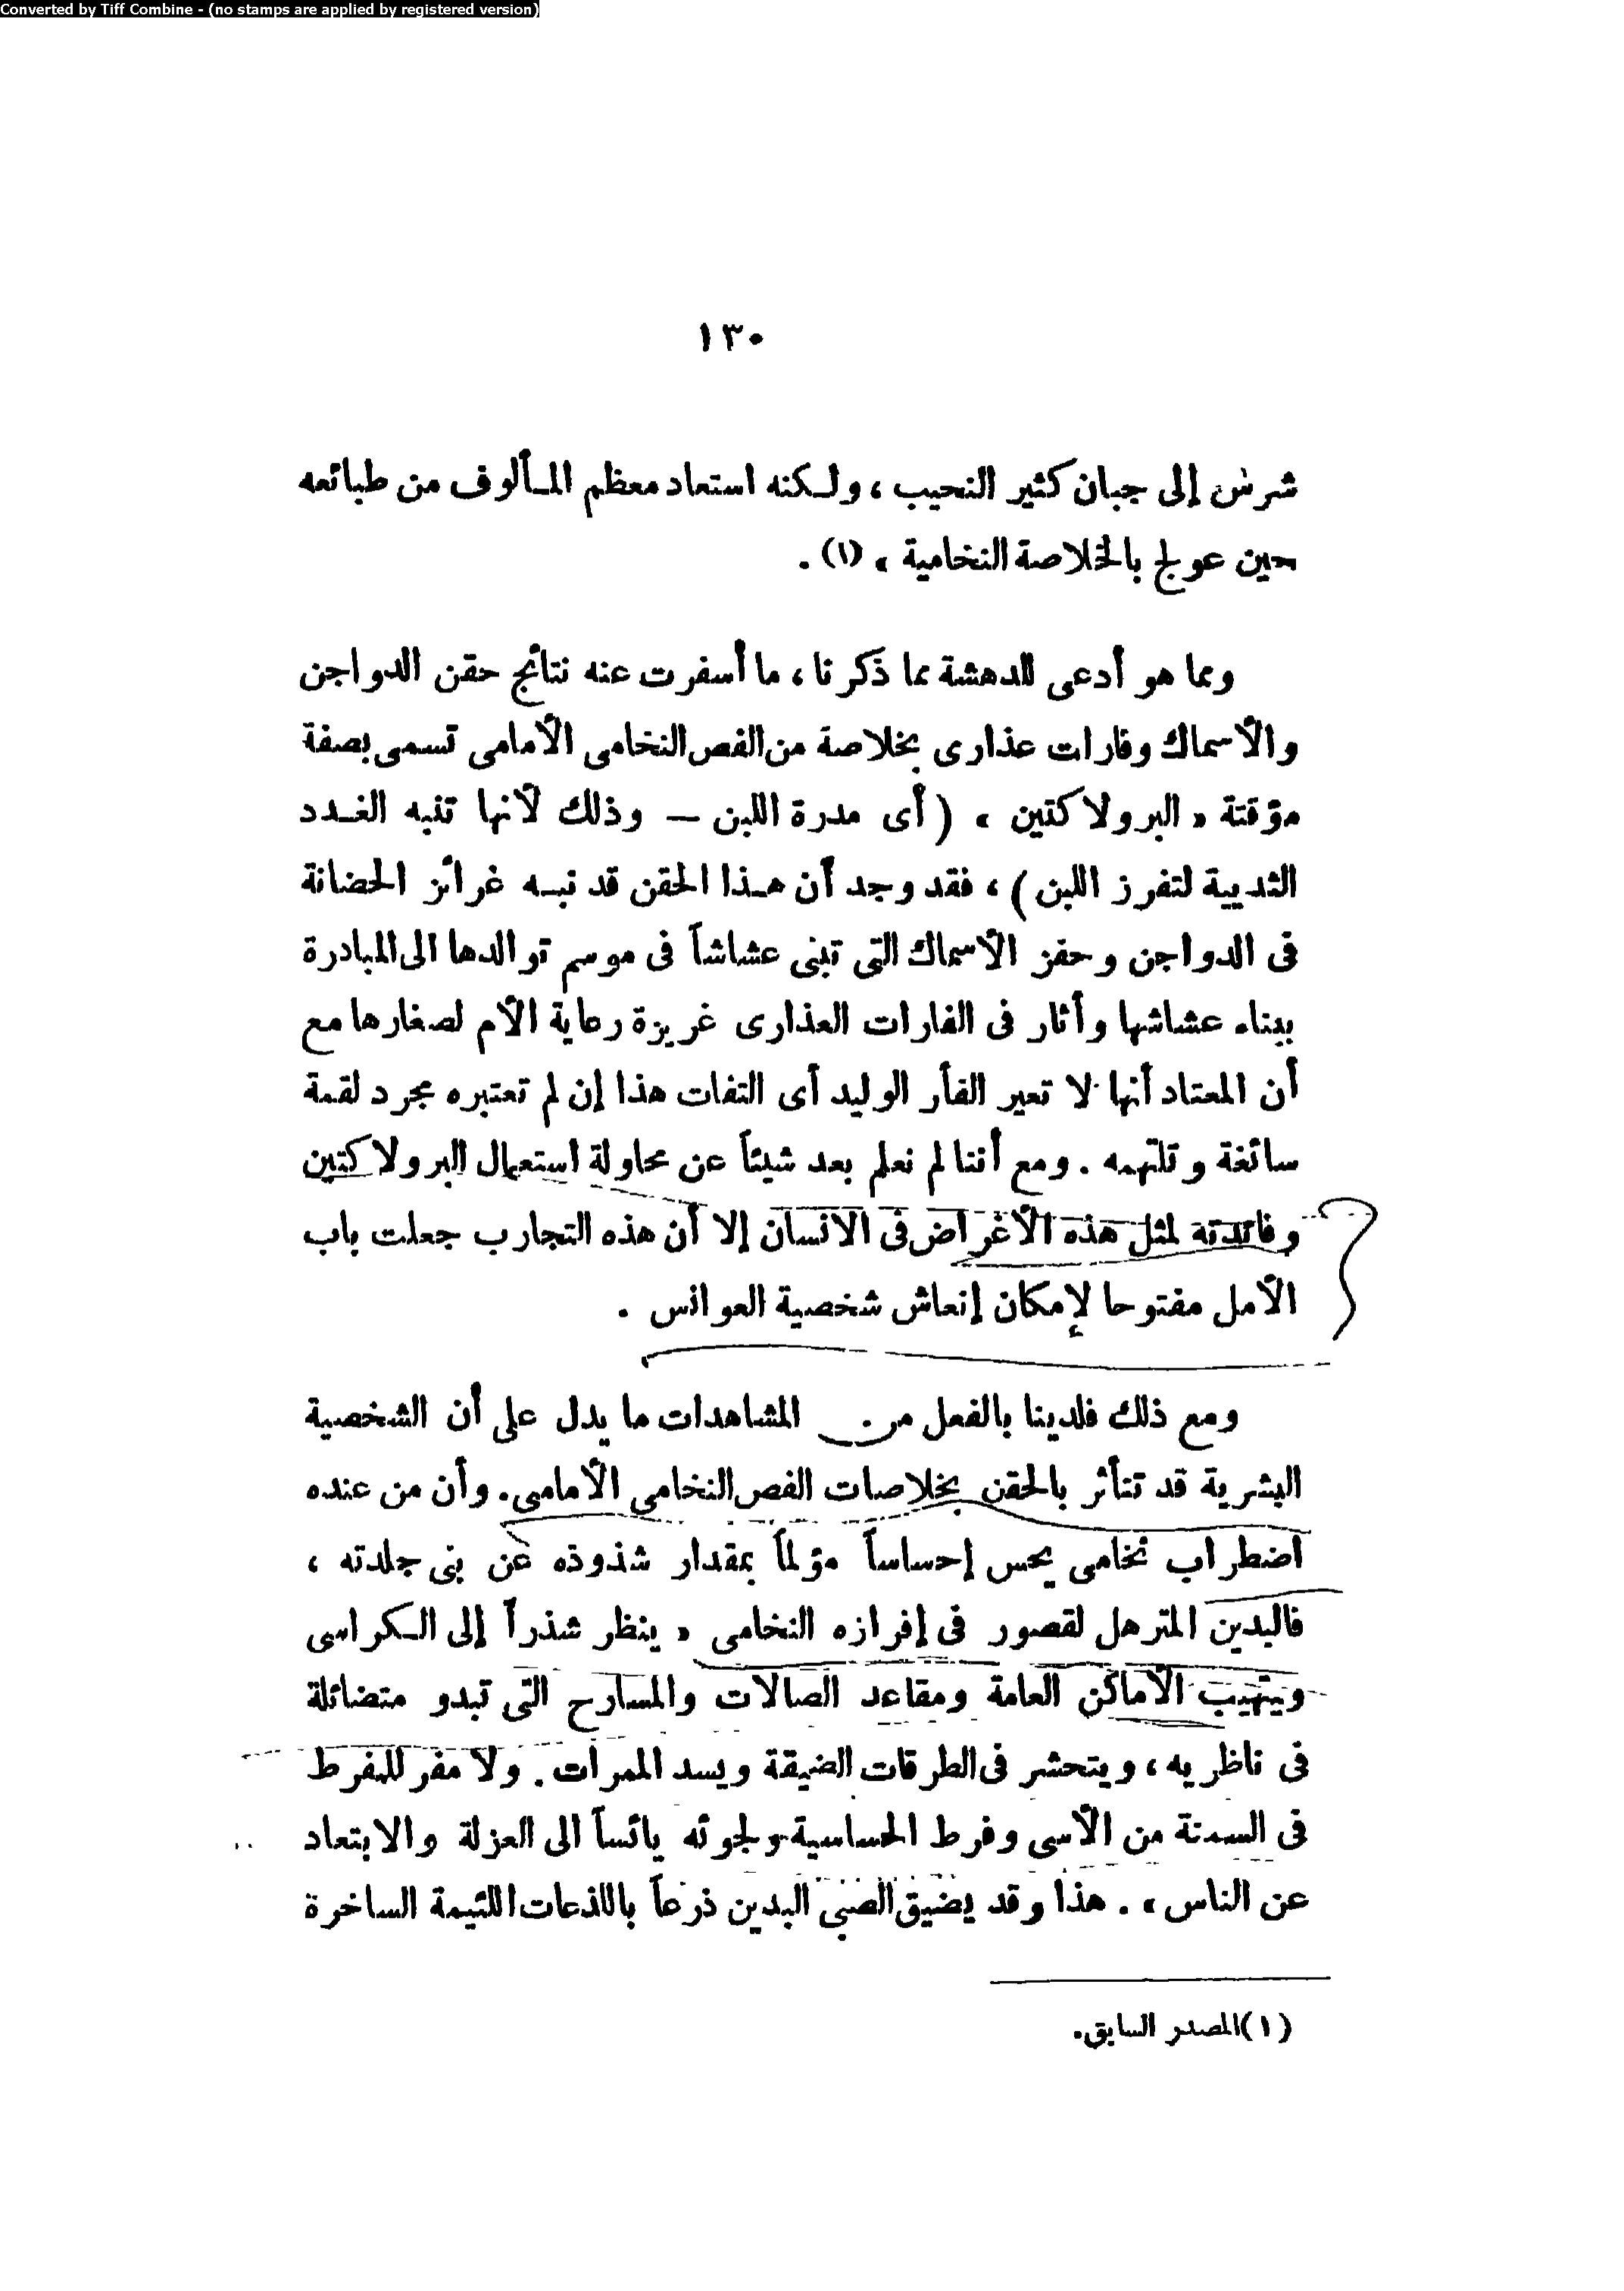 Converted by Tiff Combine - (no stamps are applied by registered version)
١٣٠
شرس إلى جبان كثير النحيب ، ولكنه استعاد معظم المألوف من طبائعه
حين عولج بالخلاصة النخامية » (١) .
ومما هو أدعى للدهشة مما ذكرنا ، ما أسفرت عنه نتائج حقن الدواجن
والأسماك وفارات عذارى بخلاصة من الفص النخامى الأمامى تسمى بصفة
مؤقتة « البرولاكتين » ( أى مدرة اللبن — وذلك لأنها تنبه الغدد
الثديية لتفرز اللبن ) ، فقد وجد أن هذا الحقن قد نبه غرائز الحضانة
فى الدواجن وحفز الأسماك التى تبنى عشاشاً فى موسم توالدها الى المبادرة
ببناء عشاشها وأثار فى الفارات العذارى غريزة رعاية الأم لصغارها مع
أن المعتاد أنها لا تعير الفأر الوليد أى التفات هذا إن لم تعتبره مجرد لقمة
سائغة وتلتهمه . ومع أننا لم نعلم بعد شيئاً عن محاولة استعمال البرولاكتين
وفائدته لمثل هذه الأغراض فى الانسان إلا أن هذه التجارب جعلت باب
الأمل مفتوحا لإمكان إنعاش شخصية العوانس .
ومع ذلك فلدينا بالفعل من المشاهدات ما يدل على أن الشخصية
البشرية قد تتأثر بالحقن بخلاصات الفص النخامى الأمامى . وأن من عنده
اضطراب نخامى يحس إحساساً مؤلماً بمقدار شذوذه عن بنى جلدته ،
فالبدين المترهل لقصور فى إفرازه النخامى « ينظر شذراً إلى الكراسى
ويتهيب الأماكن العامة ومقاعد الصالات والمسارح التى تبدو متضائلة
فى ناظريه ، ويتحشر فى الطرقات الضيقة ويسد الممرات . ولا مفر للمفرط
فى السمنة من الأسى وفرط الحساسية ولجوئه يائساً الى العزلة والابتعاد
عن الناس » . هذا وقد يضيق الصبى البدين ذرعاً باللذعات اللئيمة الساخرة
(١) المصدر السابق.